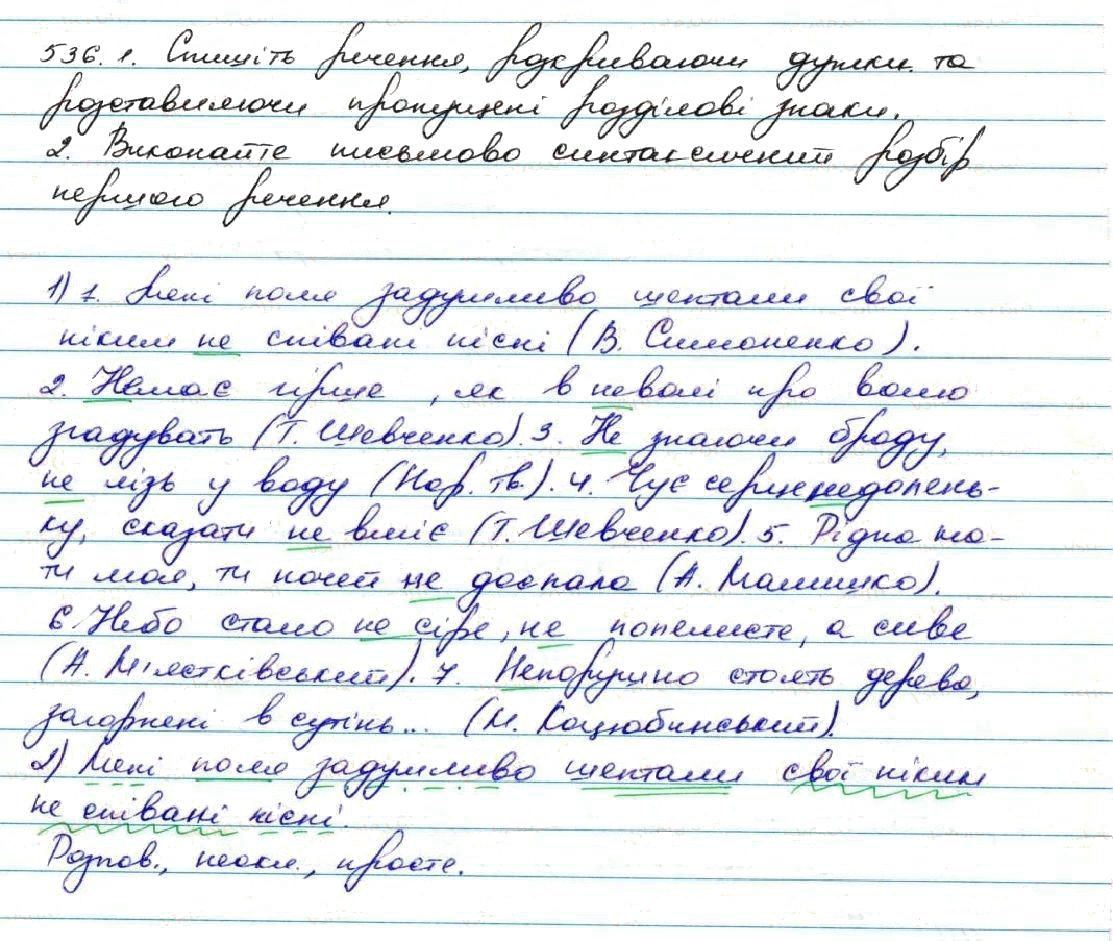 536. 1. Спишіть речення, розкриваючи дужки та
розставляючи пропущені розділові знаки.
2. Виконайте письмово синтаксичний розбір
першого речення.
1) 1. Мені поля задумливо шептали свої
ніким не співані пісні (В. Симоненко).
2. Немає гірше, як в неволі про волю
згадувать (Т. Шевченко). 3. Не знаючи броду,
не лізь у воду (Нар. тв.). 4. Чує серце недолень-
ку, сказати не вміє (Т. Шевченко). 5. Рідна ма-
ти моя, ти ночей не доспала (А. Малишко).
6. Небо стало не сіре, не попелясте, а сиве
(А. М'ястківський). 7. Непорушно стоять дерева,
загорнені в сутінь... (М. Коцюбинський).
2) Мені поля задумливо шептали свої ніким
не співані пісні.
Розпов., неокл., просте.